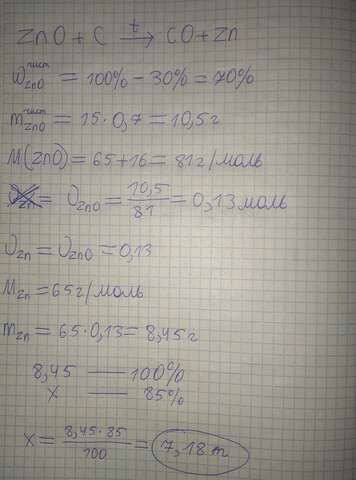 ZnO + C —t→ CO + Zn
ω ZnO чист = 100% - 30% = 70%
m ZnO чист = 15 · 0,7 = 10,5 г
M(ZnO) = 65 + 16 = 81 г/моль
υ ZnO = 10,5 / 81 = 0,13 моль
υ Zn = υ ZnO = 0,13
M Zn = 65 г/моль
m Zn = 65 · 0,13 = 8,45 г
8,45 — 100%
x — 85%
x = 8,45 · 85 / 100 = 7,18 т